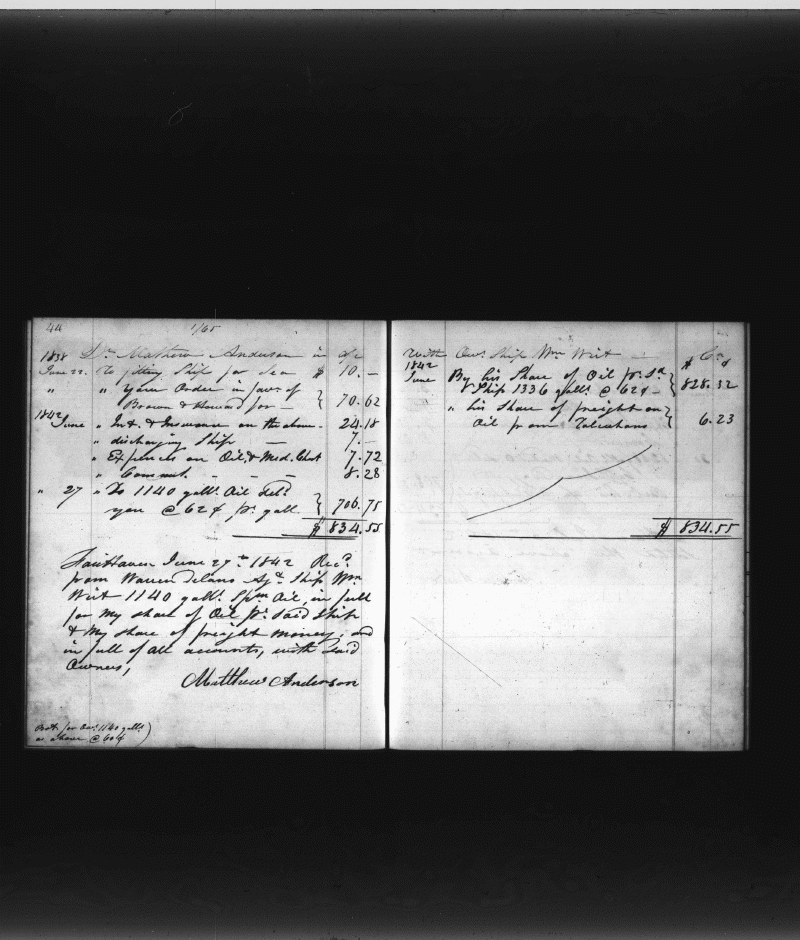 44
1/65
1838 Dr. Mathew Anderson in a/c
June 22. To fitting Ship for Sea $ 10.—
" " your Order in favr. of
Brown & Howard for — 70.62
1842
June " Int. & Insurance on the above. 24.18
" discharging Ship — 7.—
" Expences on Oil. & Med. Chst 7.72
" Commt. - - - 8.28
" 27 " To 1140 galls. Oil Deld.
you @ 62¢ pr. gall 706.75
$ 834.55
FairHaven June 27th 1842 Recd.
from Warren Delano Agt. Ship Wm
Wirt 1140 galls. Spm Oil, in full
for My share of Oil pr. Said Ship
& My share of freight money; and
in full of all accounts, with Said
Owners,
Matthew Anderson
Bot. for Ows. 1140 galls.
@ 60¢
With Ows. Ship Wm Wirt — Cr.
1842 $
June By his Share of Oil pr. Sd.
Ship 1336 galls. @ 62¢ - 828.32
" his Share of freight on
Oil from Talcahano 6.23
$ 834.55